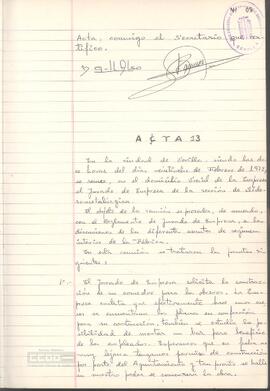 Acta, conmigo el Secretario que cer-
tifico.
ACTA 13
En la ciudad de Sevilla, siendo las
horas del día veintiseis de Febrero de 1972,
se reune, en el domicilio Social de la Empresa
el Jurado de Empresa de la sección de Side-
rometalúrgica.
El objeto de la reunión es proceder, de acuerdo,
con el Reglamento de Jurado de Empresa, a las
discusiones de los diferentes asuntos de regimen
interior de la Fábrica.
En esta reunión se trataron los puntos si-
guientes:
1º.- El Jurado de Empresa solicita la construc-
ción de un comedor para los obreros. La Em-
presa contesta que efectivamente hace unos me-
ses se encuentran los planos en confección
para su construcción, tambien se estudia la po-
sibilidad de montar un Bar para beneficio
de los empleados. Esperamos que en fecha no
muy lejana tengamos permiso de construcción
por parte del Ayuntamiento y tan pronto se halle
en nuestro poder se comenzará la obra.
CCOO